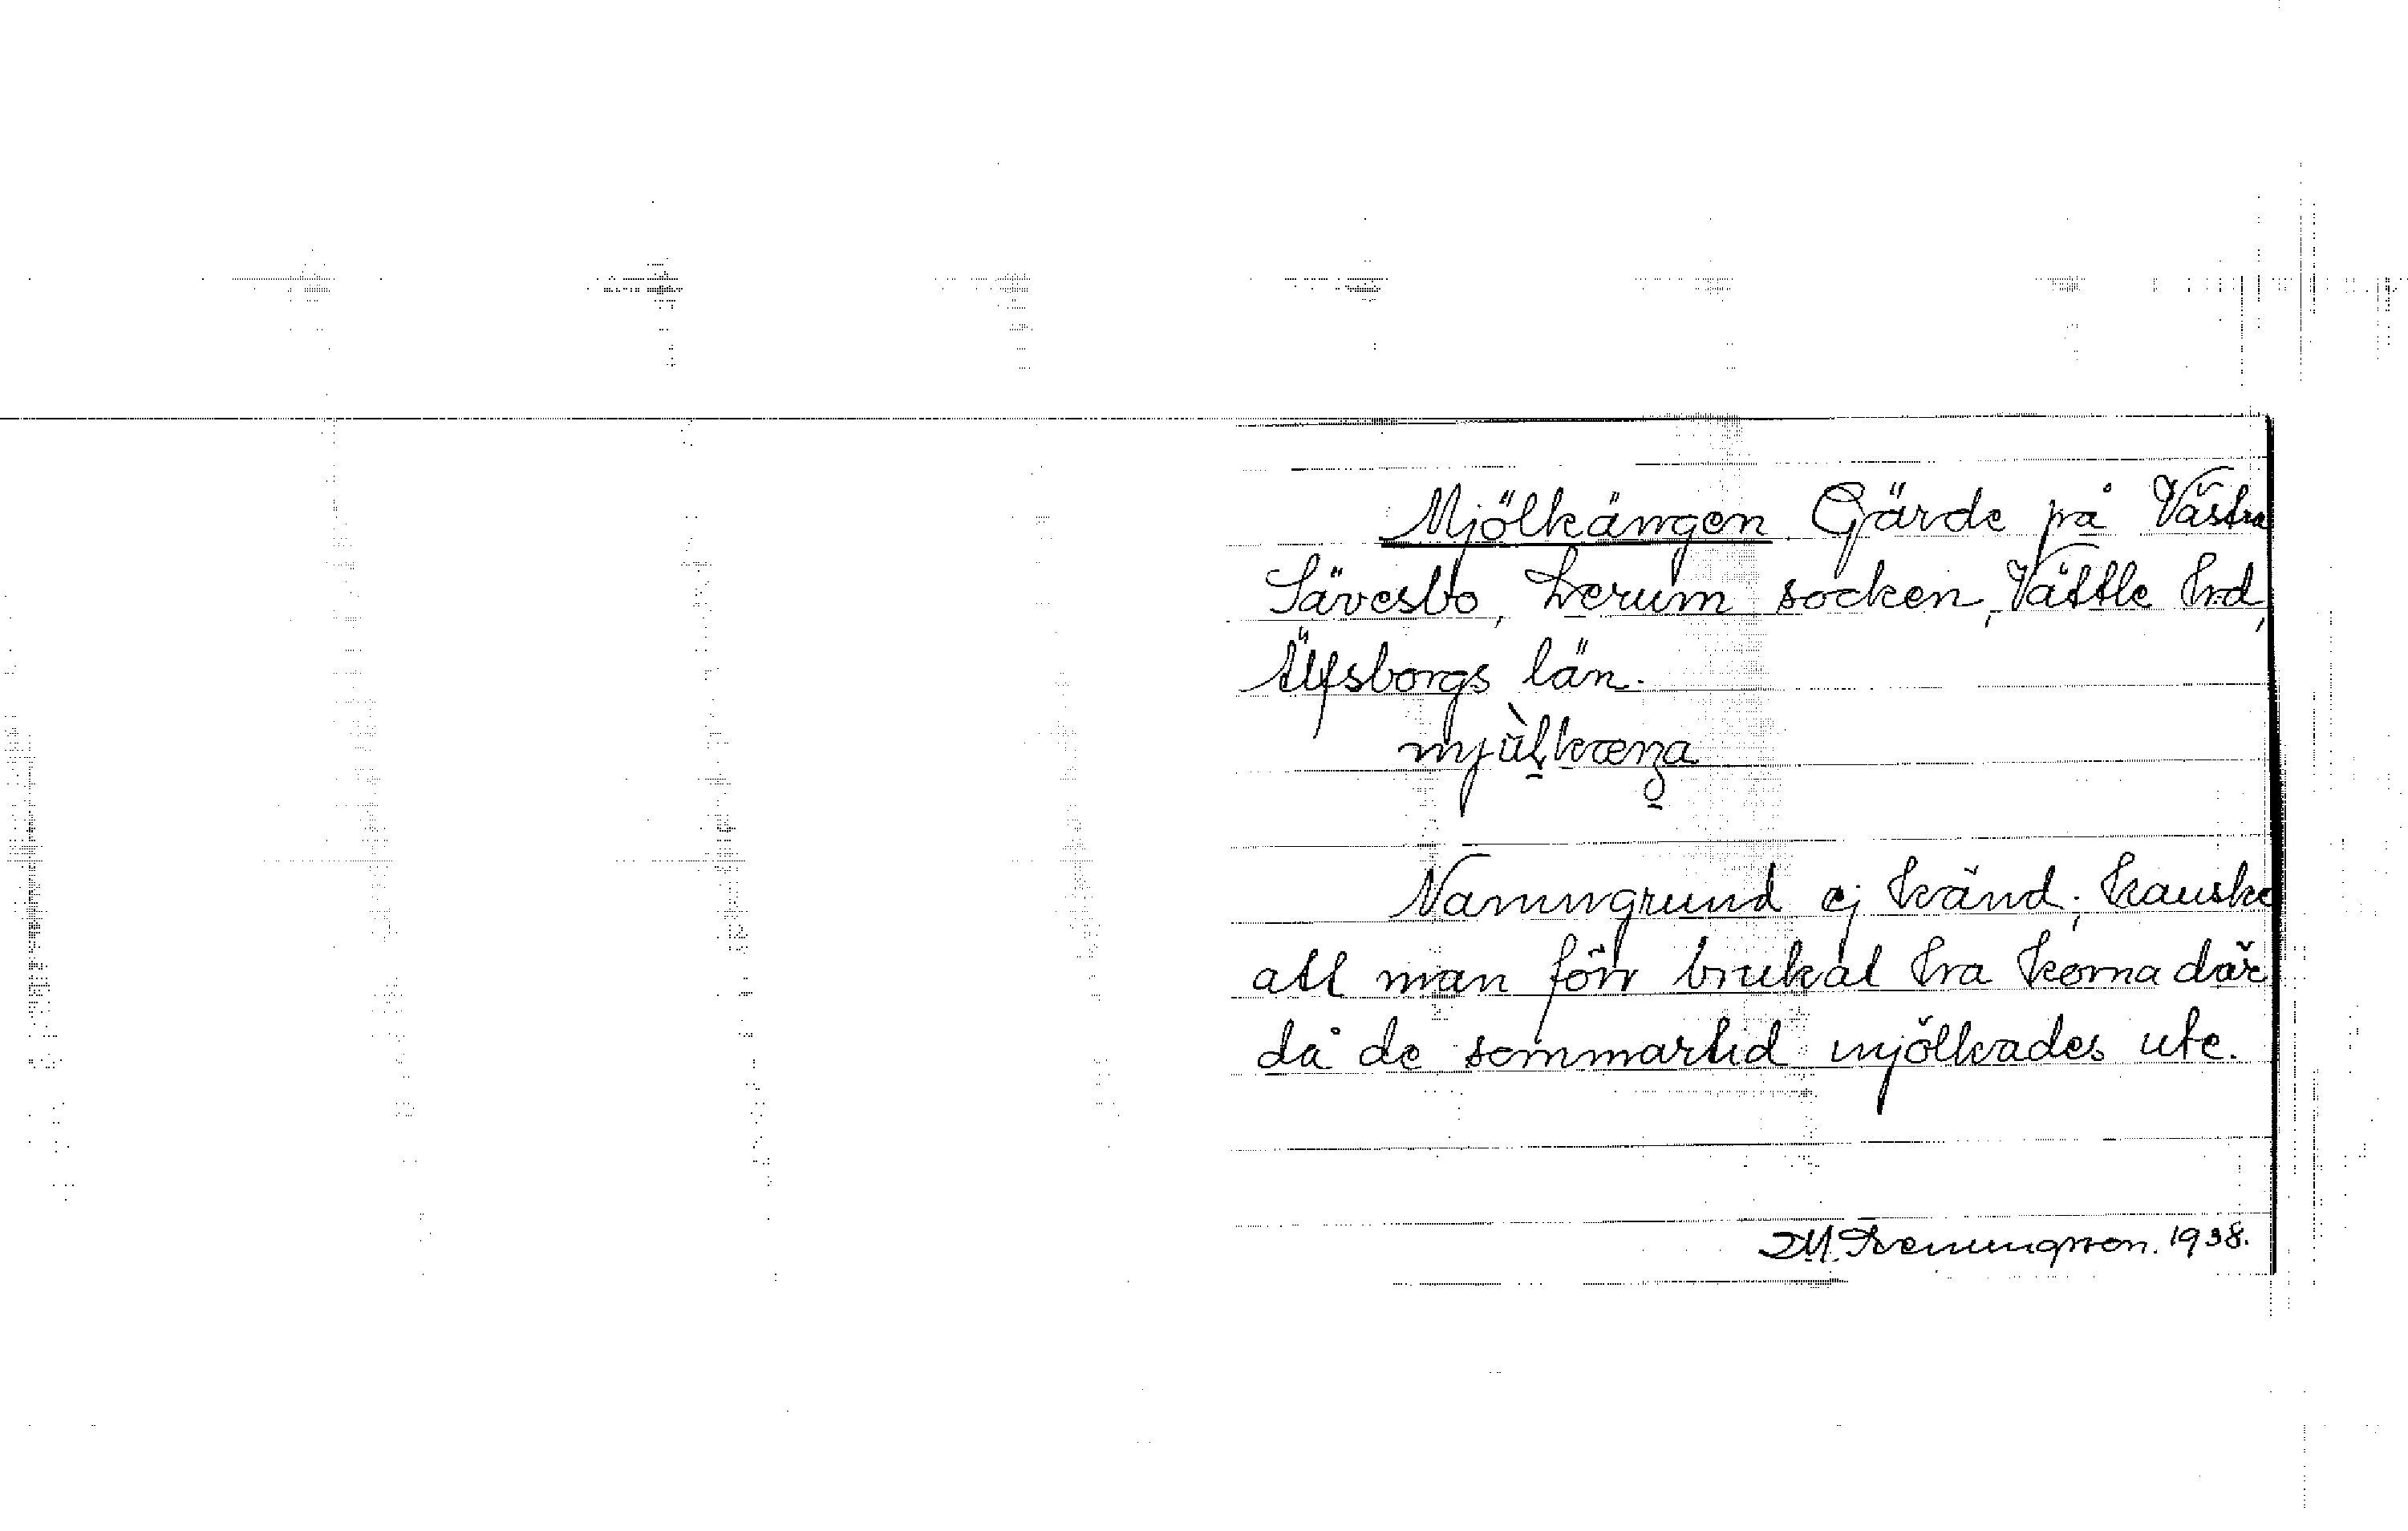 Mjölkängen Gärde på Västra
Sävesbo, Lerum socken, Vättle hd,
Älfsborgs län.
Namngrund ej känd; kanske
att man förr brukat ha korna där
då de sommartid mjölkades ute.
1938.